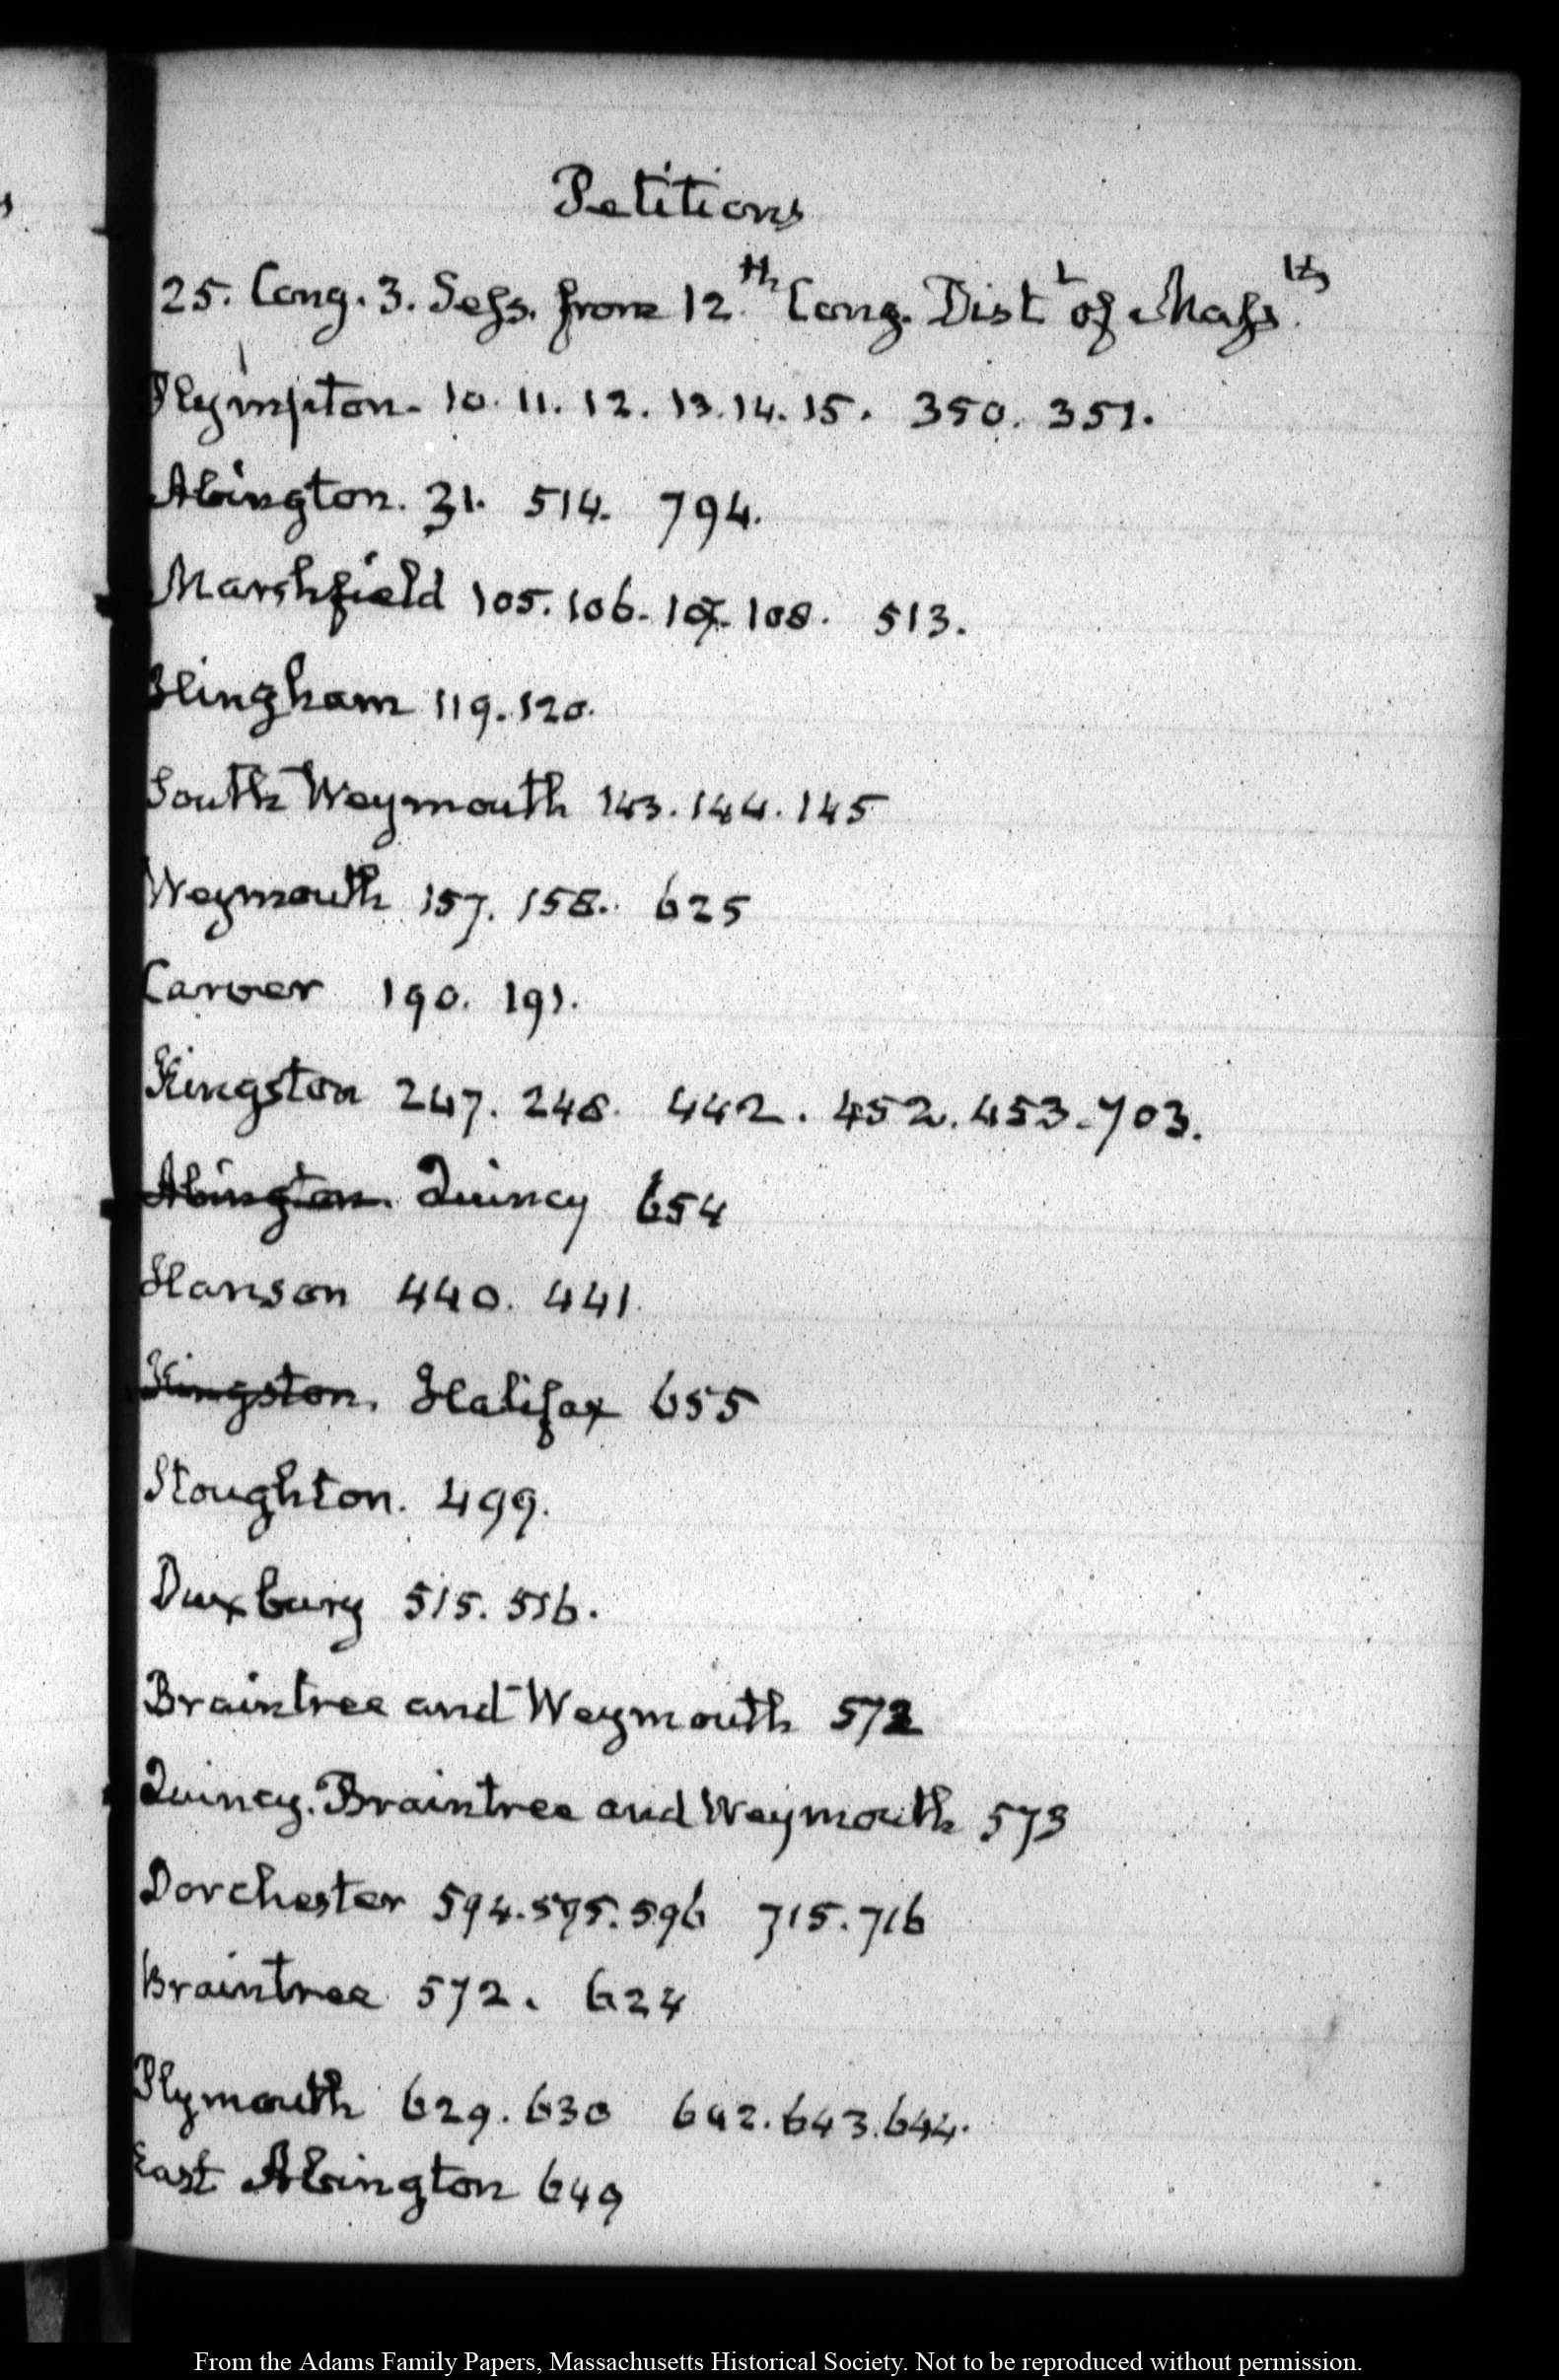 Petitions
25. Cong. 3. Sess. from 12.th Cong. Dist.t of Mass.tts
Plympton. 10. 11. 12. 13. 14. 15. 350. 351.
Abington. 31. 514. 794.
Marshfield 105. 106. 107. 108. 513.
Hingham 119. 120.
South Weymouth 143. 144. 145
Weymouth 157. 158. 625
Carver 190. 191.
Kingston 247. 248. 442. 452. 453. 703.
Abington. Quincy 654
Hanson 440. 441.
Kingston. Halifax 655
Stoughton. 499.
Duxbury 515. 516.
Braintree and Weymouth 572
Quincy. Braintree and Weymouth 573
Dorchester 594. 595. 596 715. 716
Braintree 572. 624
Plymouth 629. 630 642. 643. 644.
East Abington 649
From the Adams Family Papers, Massachusetts Historical Society. Not to be reproduced without permission.